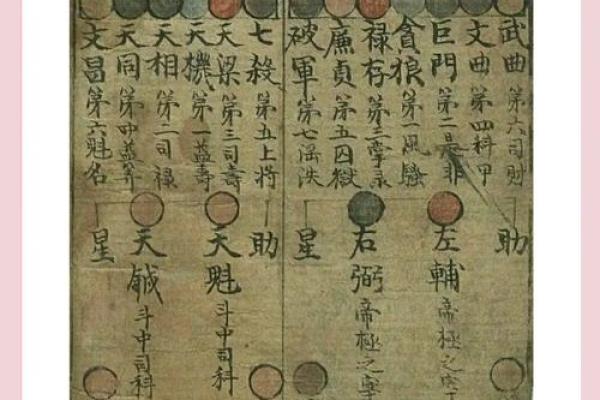 武曲第六司財
文曲第四科甲
巨門第二是非
貪狼第一風騷
禄存第三
廉貞第五囚獄
破軍第七淫泆
助
左輔帝極之宰
右弼帝極之宰
星
七殺第五上將
天梁第三司壽
天機第一益壽
天相第二司禄
天同第四益算
文昌第六魁名
助
天魁斗中司科
天鉞斗中司科
星